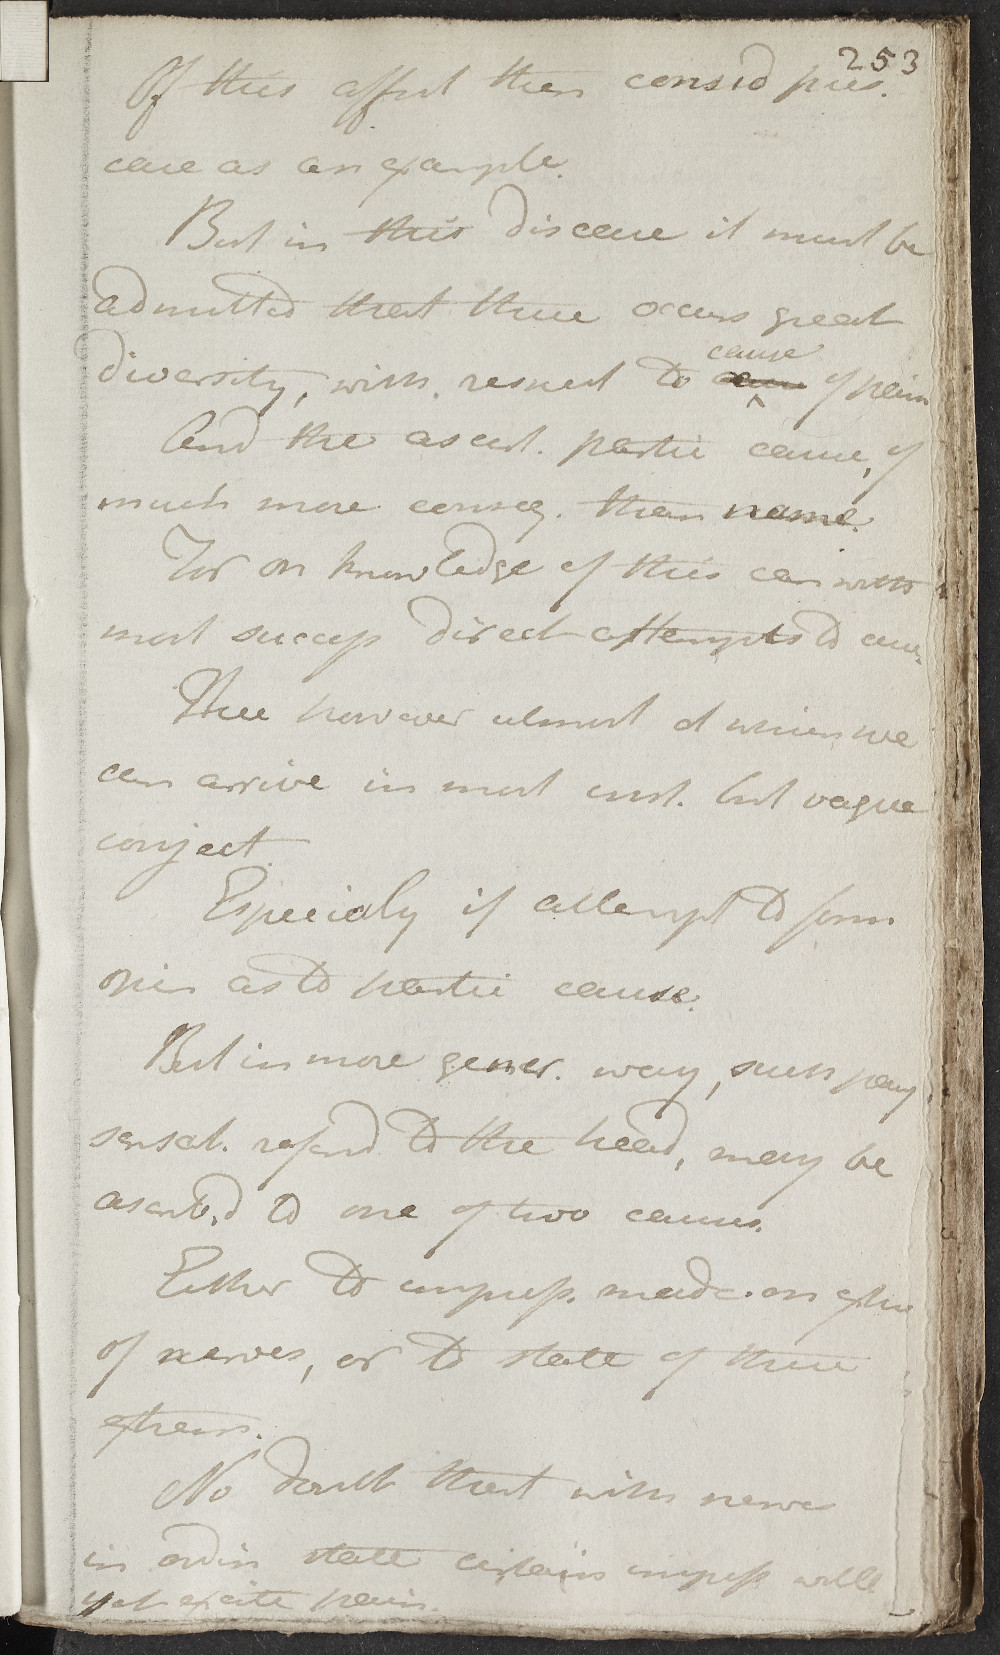 253
Of this affect then consid pres.
case as an example.
But in this disease it must be
admitted that there occurs great
diversity, with. respect to cause of pain
And the ascert. partic cause, of
much more conseq. than name.
For on knowledge of this can with
most success direct attempts to cure.
The however utmost at which we
can arrive in most inst. but vague
conject
Especialy if attempt to form
opin as to partic cause.
But in more gener. way, such pain
sensat. referd to the head, may be
ascrib.d to one of two causes.
Either to impress. made. on extre
of nerves, or to state of these
extrem.
No doubt that with nerves
in ordin state certain impress will
yet excite pain.